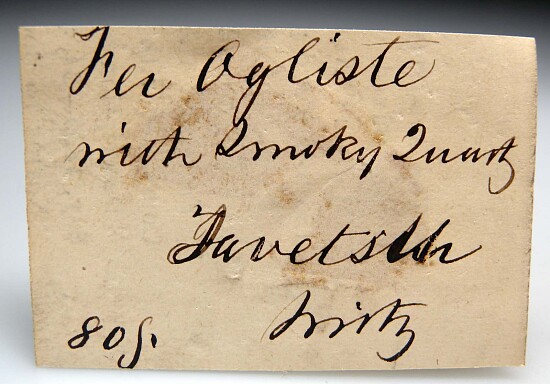 Fer Ogliste
with Smoky Quartz
Tavetsch
Switz
80g.